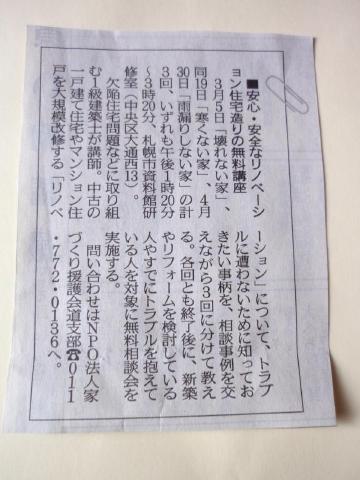 ■安心・安全なリノベーシ
ョン住宅造りの無料講座
３月５日「壊れない家」、
同19日「寒くない家」、４月
30日「雨漏りしない家」の計
３回、いずれも午後１時20分
～３時20分、札幌市資料館研
修室（中央区大通西13）。
欠陥住宅問題などに取り組
む１級建築士が講師。中古の
一戸建て住宅やマンション住
戸を大規模改修する「リノベ
ーション」について、トラブ
ルに遭わないために知ってお
きたい事柄を、相談事例を交
えながら３回に分けて教え
る。各回とも終了後に、新築
やリフォームを検討している
人やすでにトラブルを抱えて
いる人を対象に無料相談会を
実施する。
問い合わせはＮＰＯ法人家
づくり援護会道支部☎０１１
・７７２・０１３６へ。